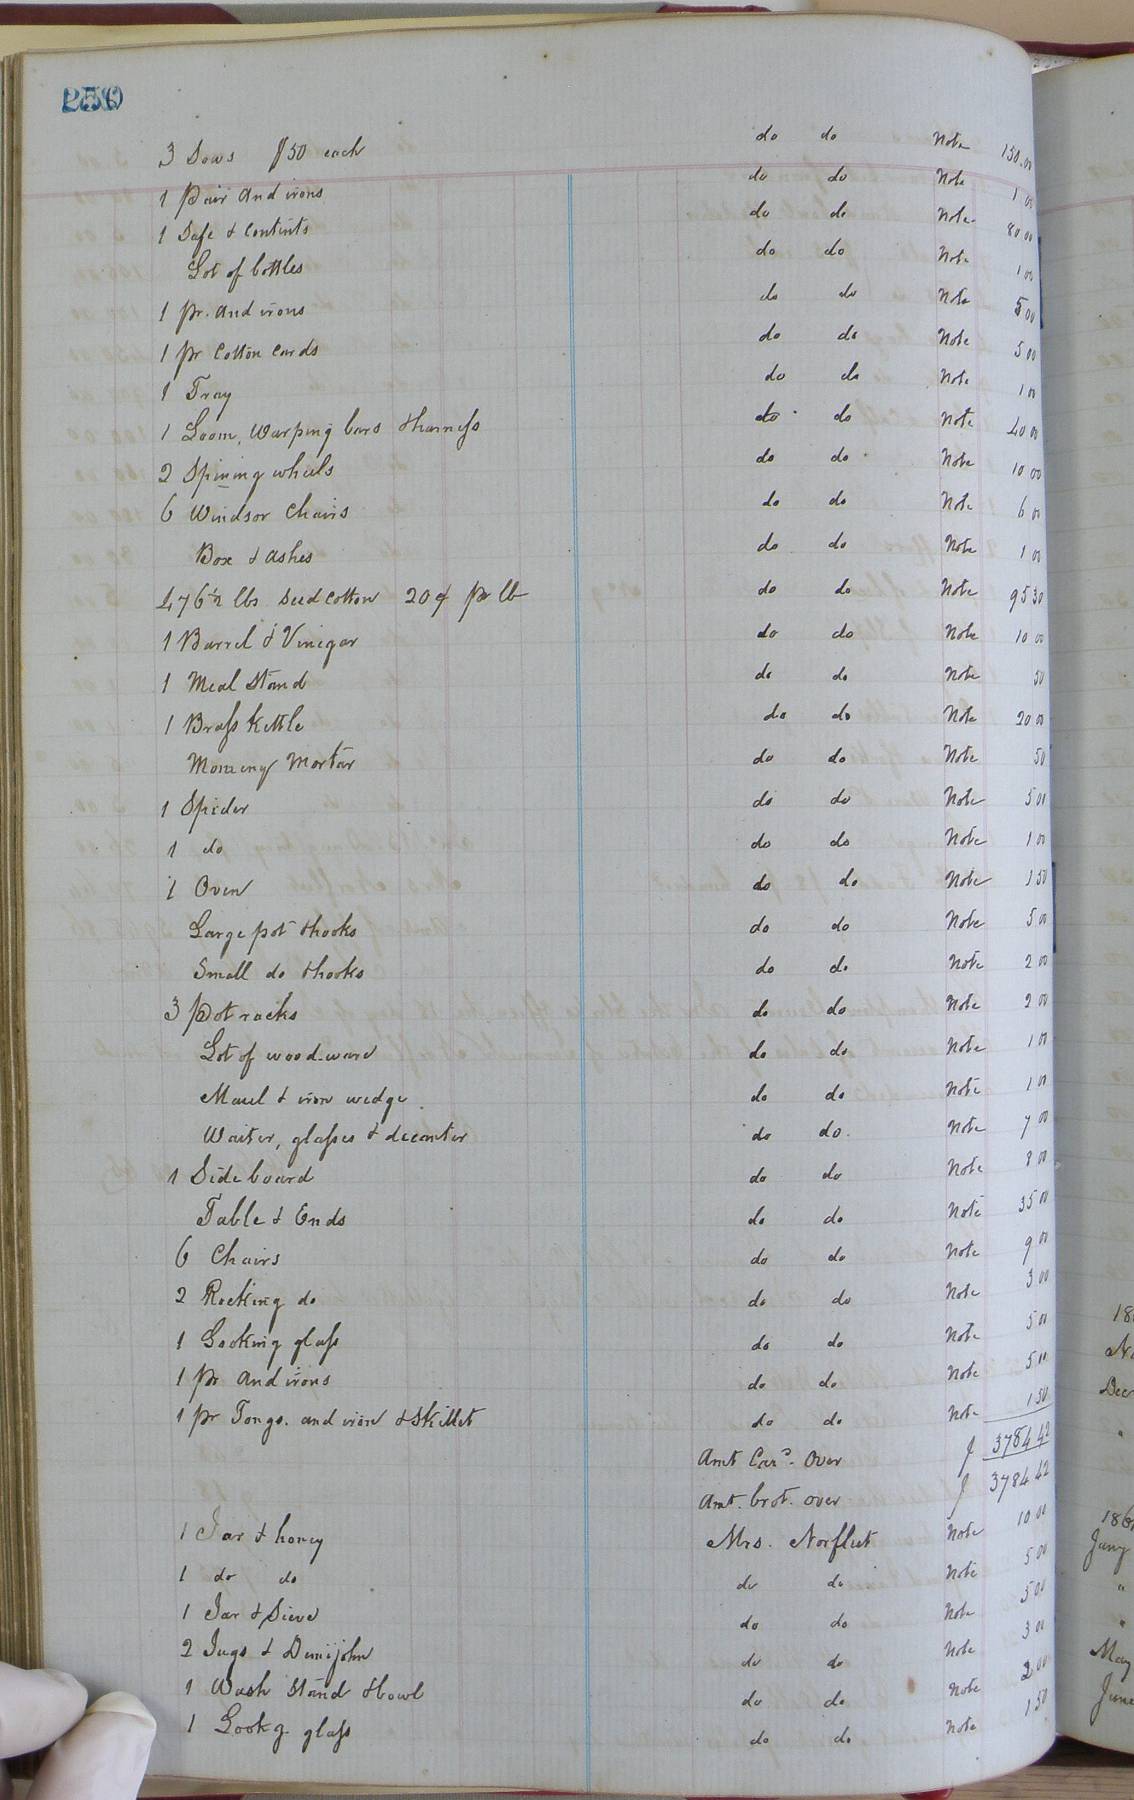 250
3 Sows $50 each do do Note 150.00
1 Pair And irons do do Note 1 00
1 Safe & Contents do do Note 80 00
Lot of bottles do do Note 1 00
1 pr. And irons do do Note 5 00
1 pr Cotton Cards do do Note 5 00
1 Tray do do Note 1 00
1 Loom, Warping bars & harness do do Note 40 00
2 Spining wheels do do Note 10 00
6 Windsor Chairs do do Note 6 00
Box & Ashes do do Note 1 00
476½ lbs Seed Cotton 20 ¢ pr lb do do Note 95 30
1 Barrel & Vinegar do do Note 10 00
1 Meal Stand do do Note 50
1 Brass Kettle do do Note 20 00
Mortar do do Note 50
1 Spider do do Note 5 00
1 do do do Note 1 00
1 Oven do do Note 1 50
Large pot & hooks do do Note 5 00
Small do & hooks do do Note 2 00
3 Pot racks do do Note 2 00
Lot of wood ware do do Note 1 00
Maul & iron wedge do do Note 1 00
Waiter, glasses & decanter do do Note 7 00
1 Side board do do Note 8 00
Table & Ends do do Note 35 00
6 Chairs do do Note 9 00
2 Rocking do do do Note 3 00
1 Looking glass do do Note 5 00
1 pr And irons do do Note 5 00
1 pr Tongs. and iron & Skillet do do Note 1 50
Amt Car.d Over $ 3784 42
Amt. brot. over $ 3784 42
1 Jar & honey Mrs. Norfleet Note 10 00
1 do do do do Note 5 00
1 Jar & Sieve do do Note 5 00
2 Jugs & Demijohn do do Note 3 00
1 Wash Stand & bowl do do Note 2 00
1 Look g. glass do do Note 1 50
Dec
Jany
May
June